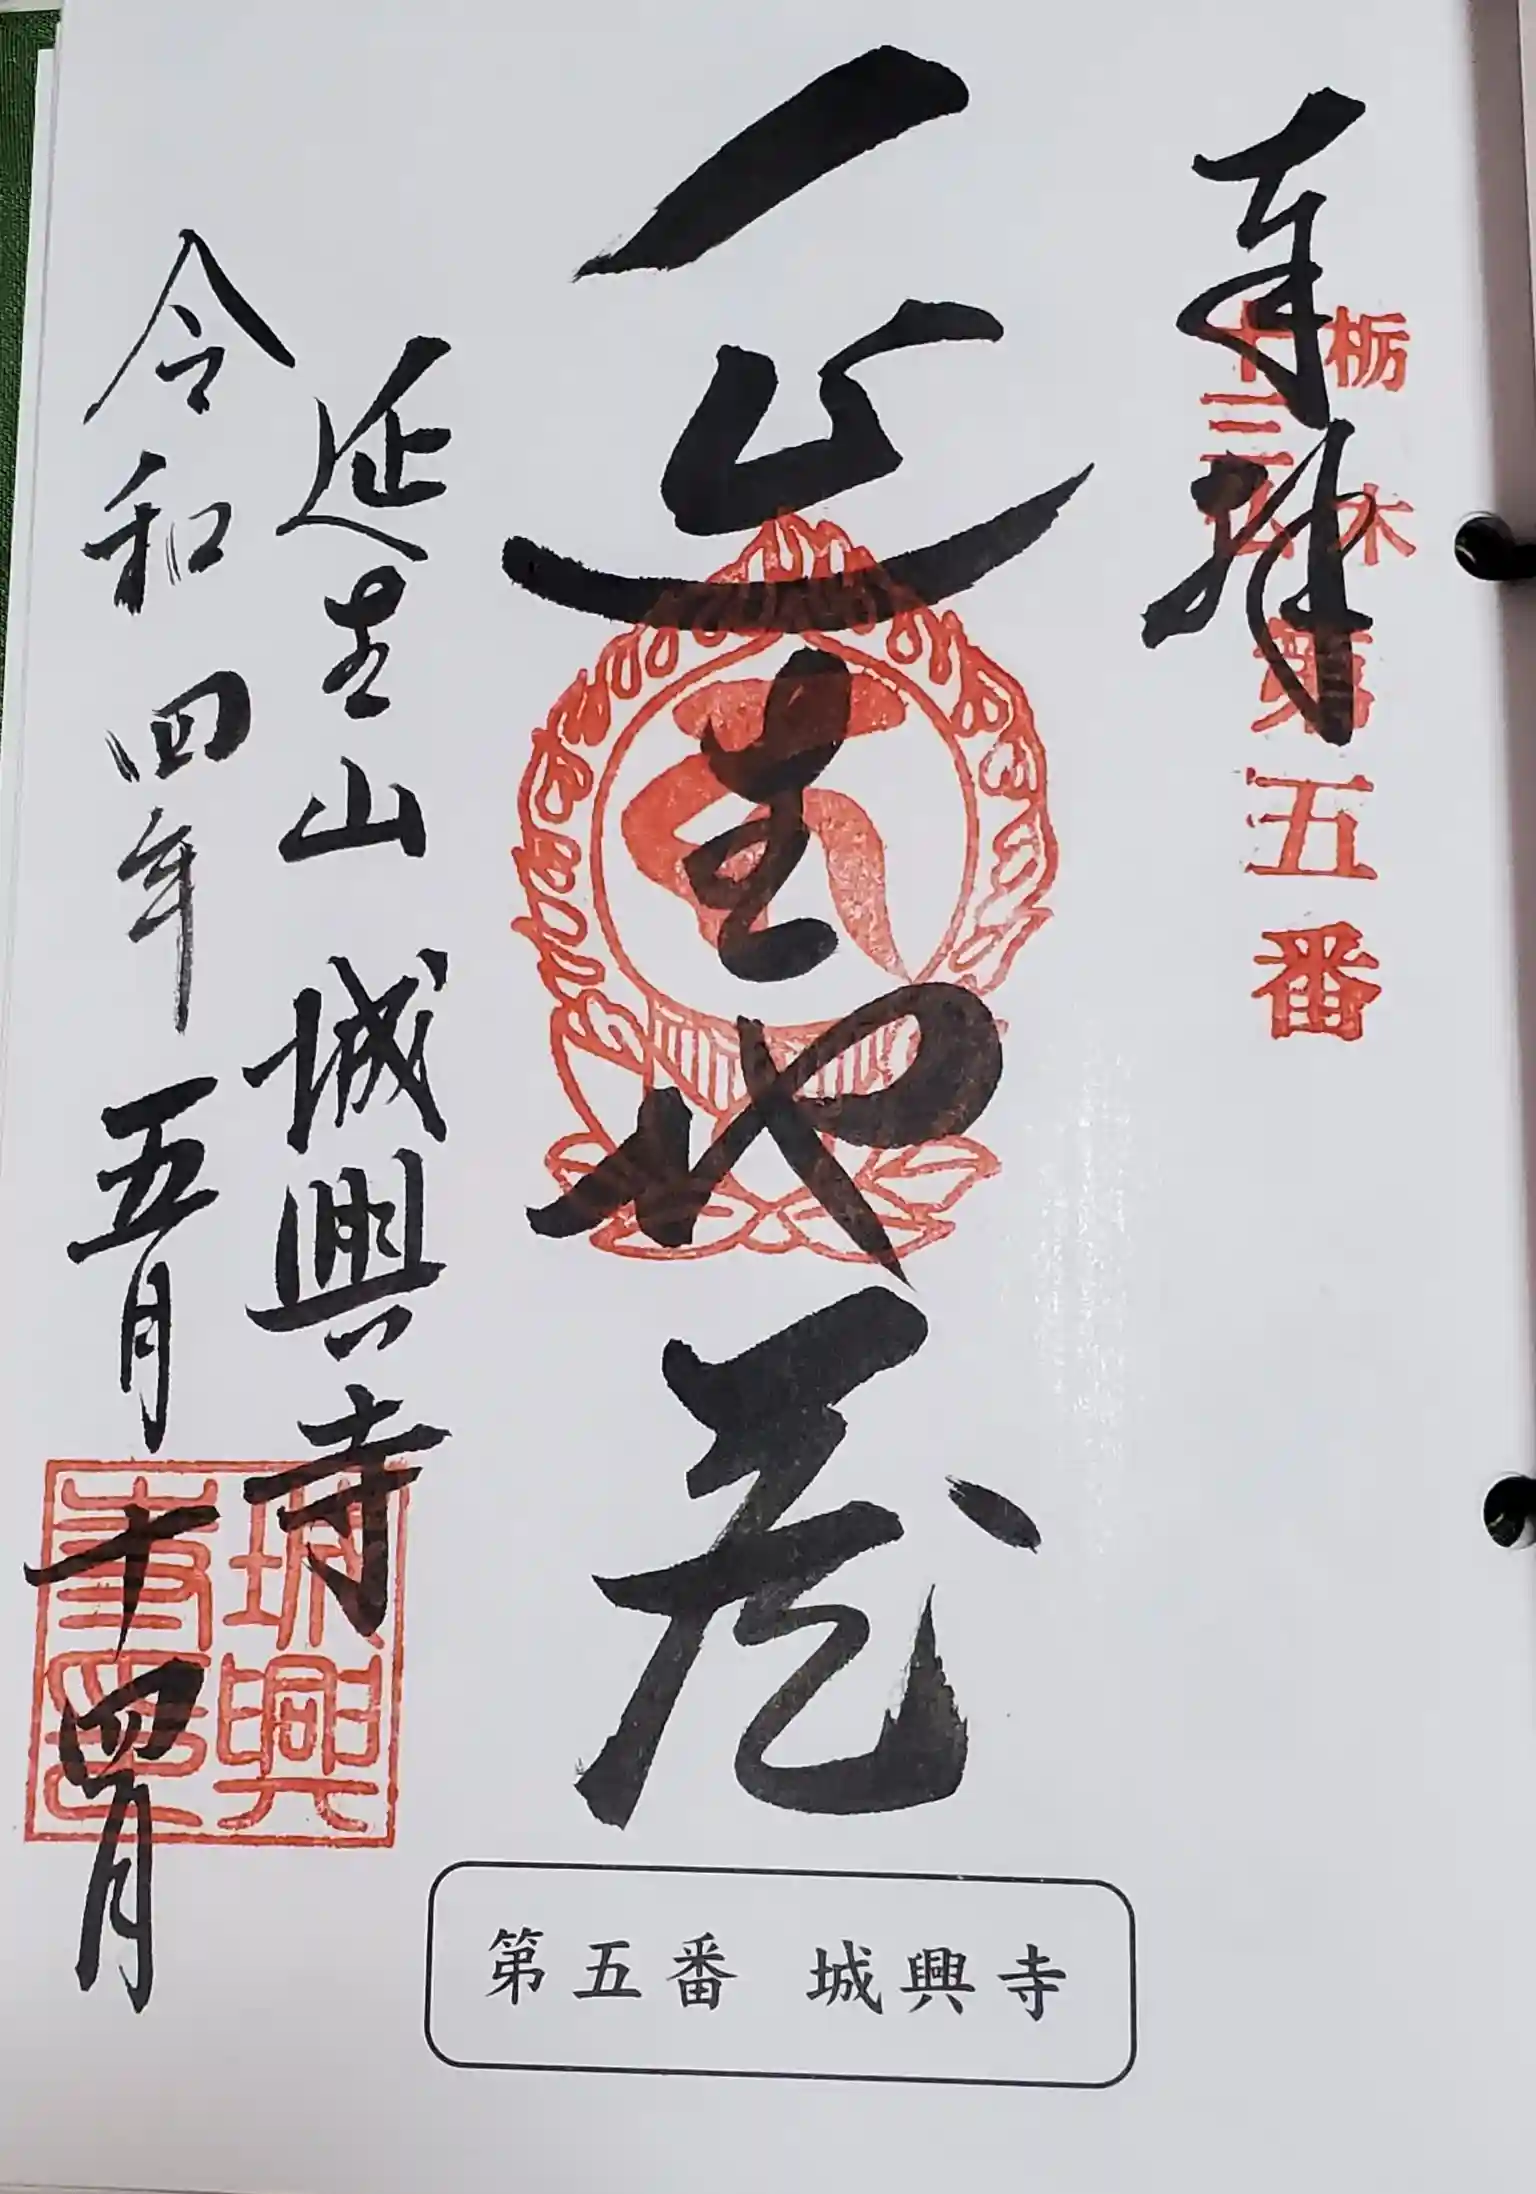 奉拝
栃木
十三仏
第五番
延生地蔵
延生山 城興寺
令和四年五月十四日
城興寺印
第五番 城興寺